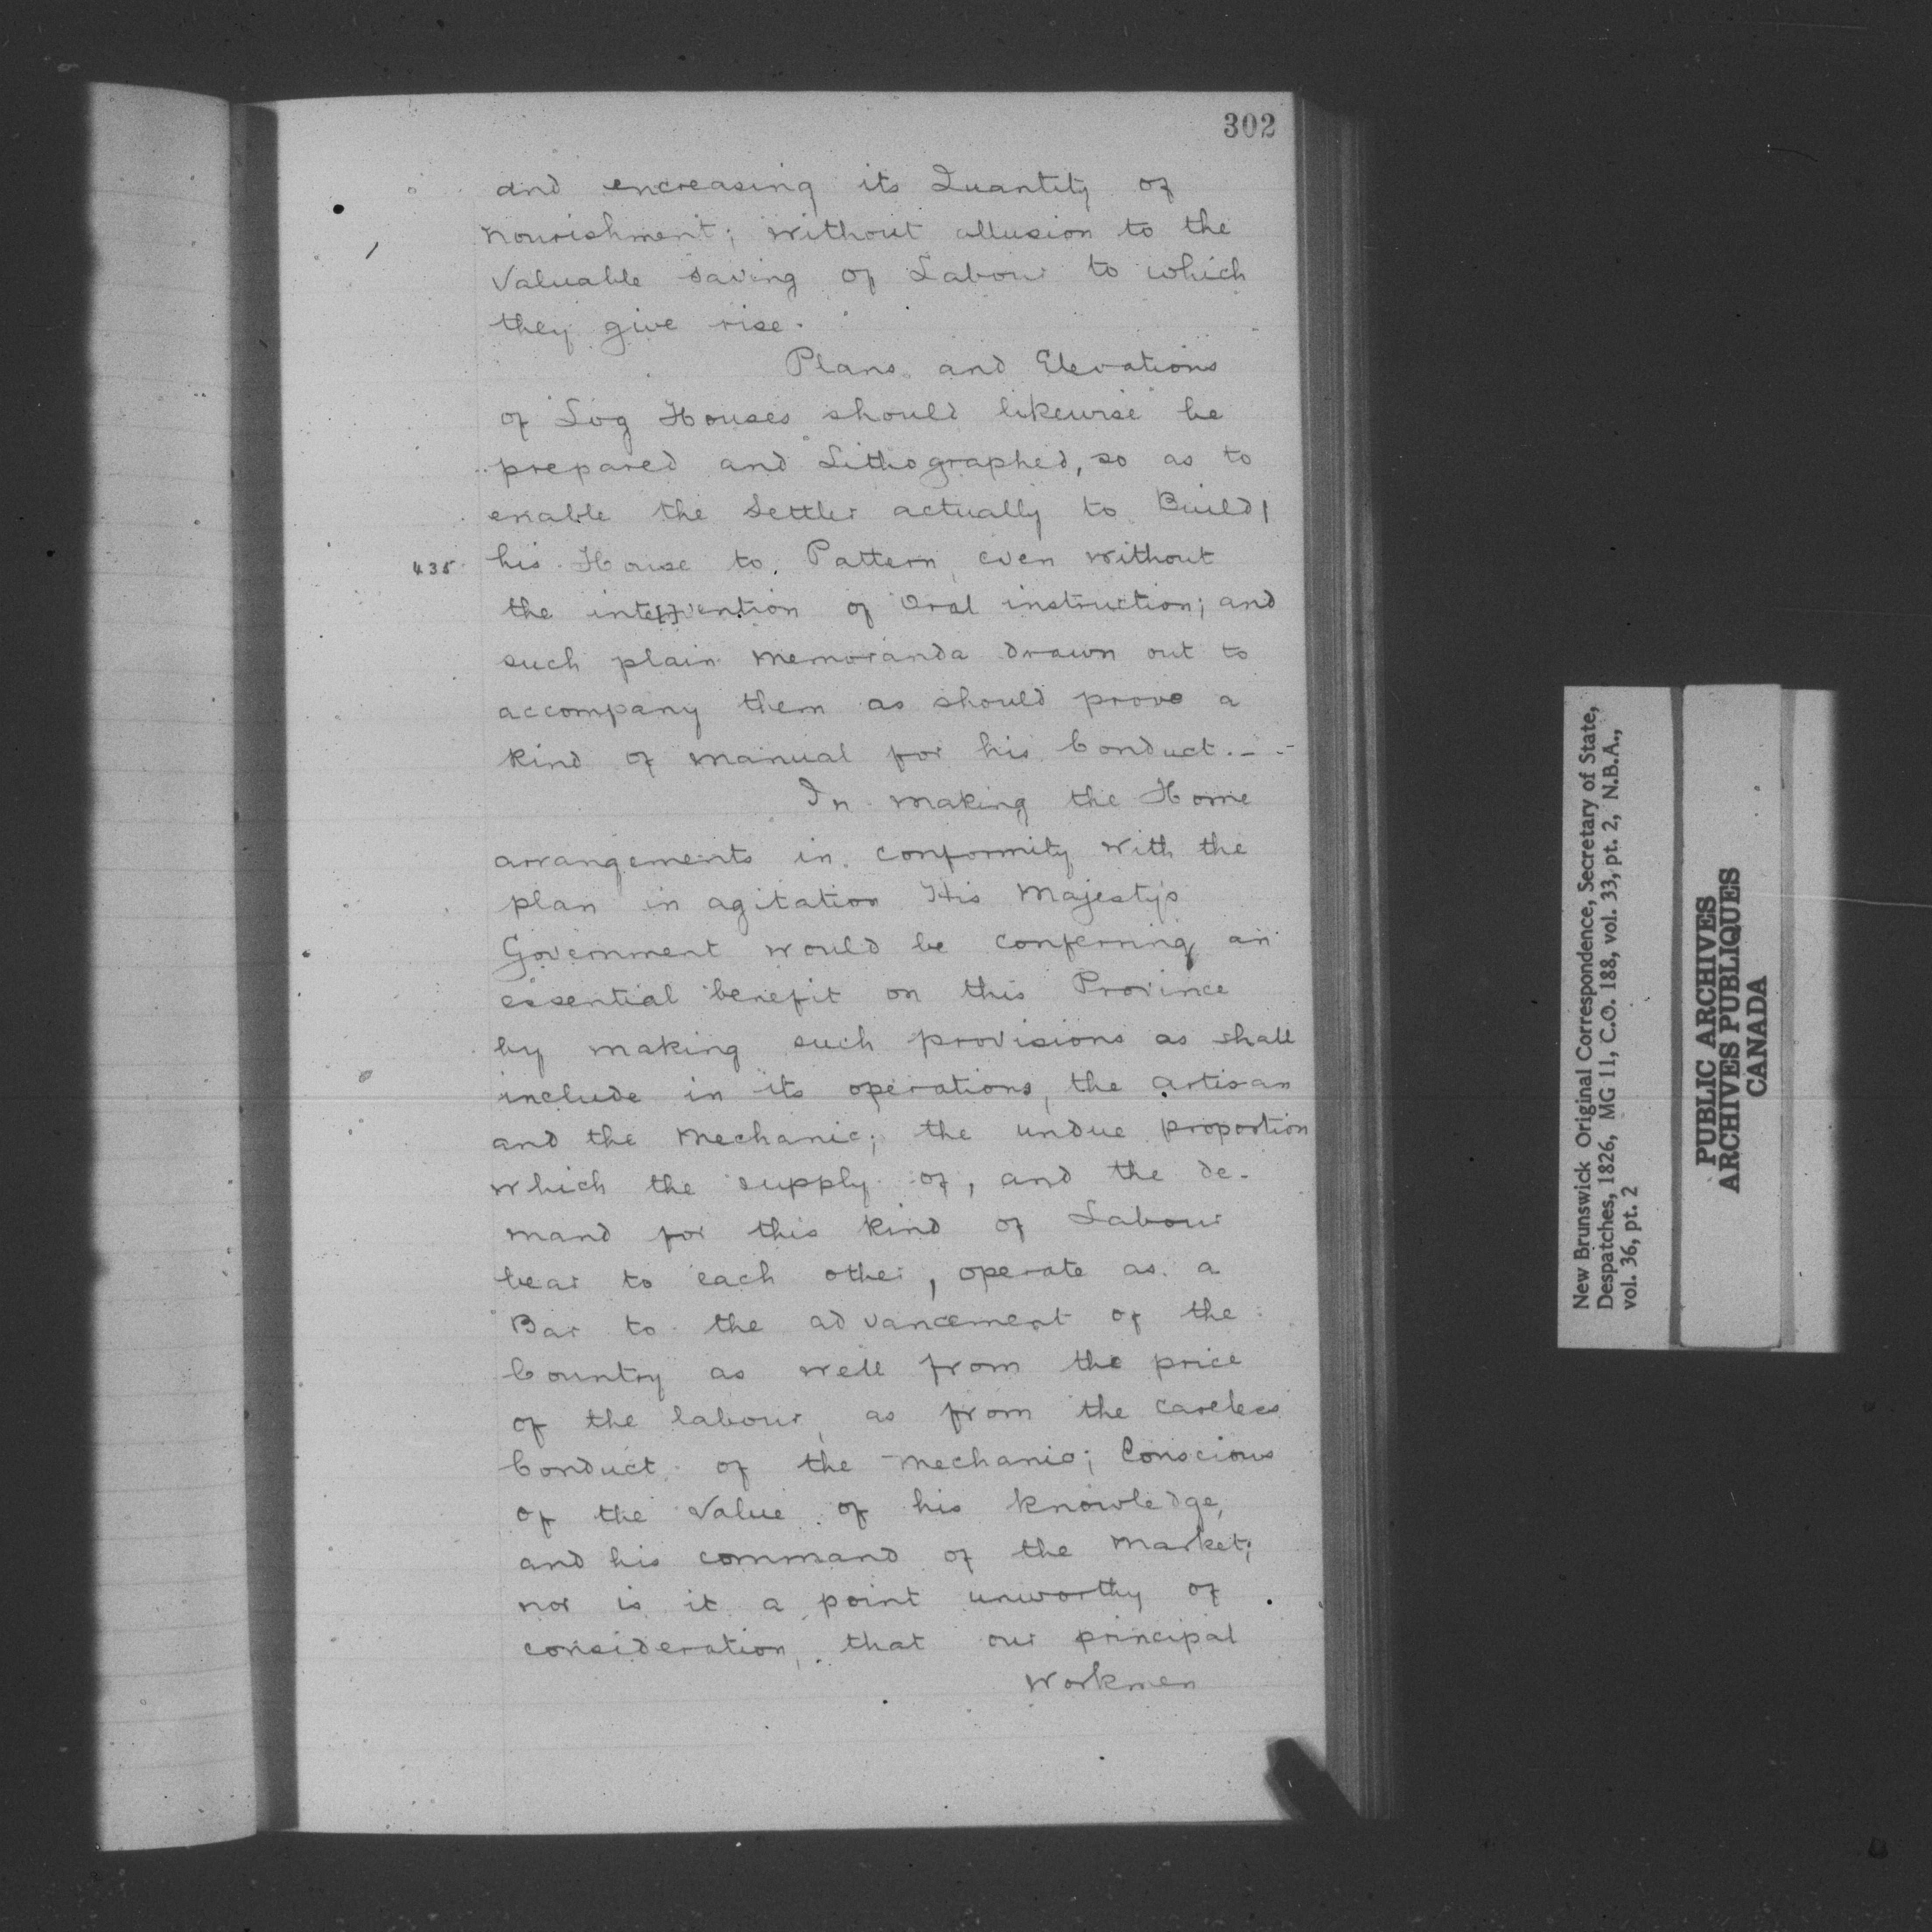 302
and encreasing its Quantity of
nourishment; without allusion to the
Valuable saving of Labour to which
they give rise.
Plans and Elevations
of Log Houses should likewise be
prepared and Lithographed, so as to
enable the Settler actually to Build
435 his House to Pattern, even without
the inte[r]vention of Oral instruction; and
such plain Memoranda drawn out to
accompany them as should prove a
kind of manual for his Conduct. _
In making the Home
arrangements in conformity with the
plan in agitation His Majesty's
Government would be conferring an
essential benefit on this Province
by making such provisions as shall
include in its operations, the artisan
and the Mechanic; the undue proportion
which the supply of, and the de-
mand for this kind of Labour
bear to each other, operate as a
Bar to the advancement of the
Country as well from the price
of the labour, as from the careless
Conduct of the Mechanic; Conscious
of the Value of his knowledge,
and his command of the Market;
nor is it a point unworthy of
consideration, that our principal
Workmen
New Brunswick Original Correspondence, Secretary of State,
Despatches, 1826, MG 11, C.O. 188, vol. 33, pt. 2, N.B.A.,
vol. 36, pt. 2
PUBLIC ARCHIVES
ARCHIVES PUBLIQUES
CANADA